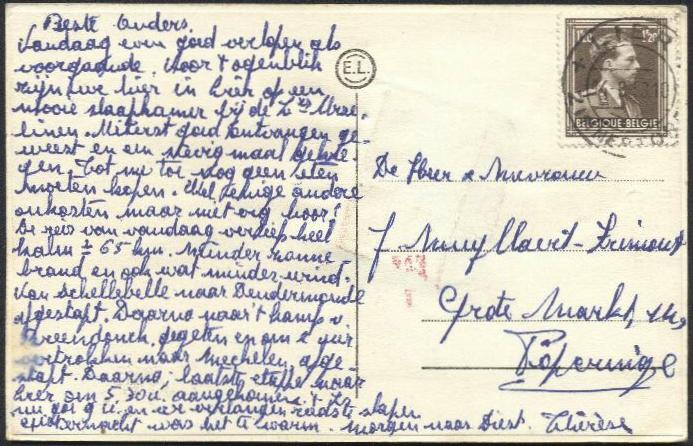 Beste Ouders,
Vandaag even goed verlopen als
voorgaande. Voor 't ogenblik
zijn we hier in Lier op een
mooie slaapkamer bij de Zrs Ursu-
linen. Uiterst goed ontvangen ge-
weest en een stevig maal gekre-
gen. Tot nu toe nog geen eten
moeten kopen. Wel enige andere
onkosten maar niet erg hoor!
De reis van vandaag verliep heel
kalm ± 65 km. Minder zonne-
brand en ook wat minder wind.
Van Schellebelle naar Dendermonde
afgestapt. Daarna naar 't kamp v.
Breendonck, gegeten en om 2 uur
vertrokken naar Mechelen, afge-
stapt. Daarna, laatste etappe naar
Lier om 5,30u. aangekomen. 't Is
nu 9 u. en we verlangen reeds te slapen
vernacht was het te warm. Morgen naar Diest. Thérèse
E.L.
1F20 1F20
BELGIQUE-BELGIE
LIER
De Heer & Mevrouw
J.
Grote Markt,
Poperinge